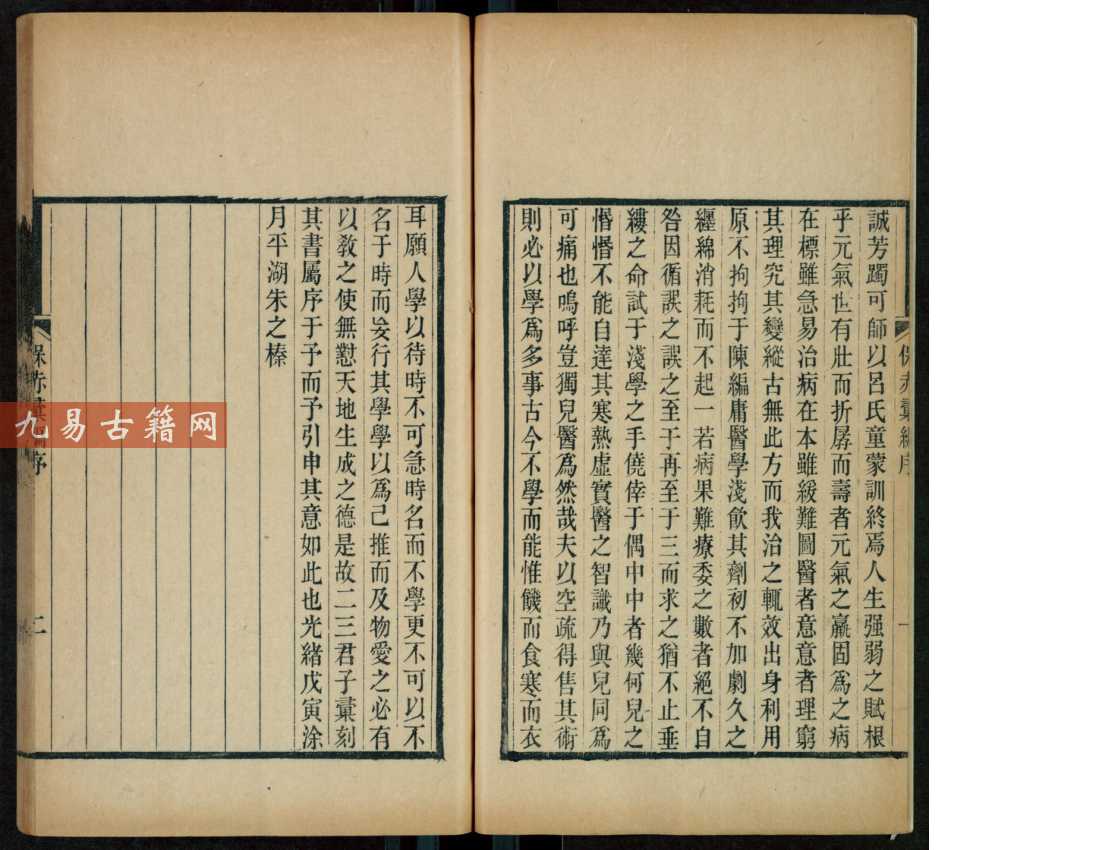 誠芳躅可師以呂氏童蒙訓終焉人生强弱之賦根
乎元氣世有壯而折孱而壽者元氣之羸固爲之病
在標雖急易治病在本雖緩難圖醫者意意者理窮
其理究其變縱古無此方而我治之輒效出身利用
原不拘拘于陳編庸醫學淺飮其劑初不加劇久之
纒綿消耗而不起一若病果難療委之數者絕不自
咎因循誤之誤之至于再至于三而求之猶不止垂
縷之命試于淺學之手僥倖于偶中中者幾何兒之
惛惛不能自達其寒熱虛實醫之智識乃與兒同爲
可痛也嗚呼豈獨兒醫爲然哉夫以空疏得售其術
則必以學爲多事古今不學而能惟饑而食寒而衣
保赤彙編序
一
耳願人學以待時不可急時名而不學更不可以不
名于時而妄行其學學以爲己推而及物愛之必有
以敎之使無懟天地生成之德是故二三君子彙刻
其書屬序于予而予引申其意如此也光緒戊寅涂
月平湖朱之榛
保赤彙編序
二
九易古籍网